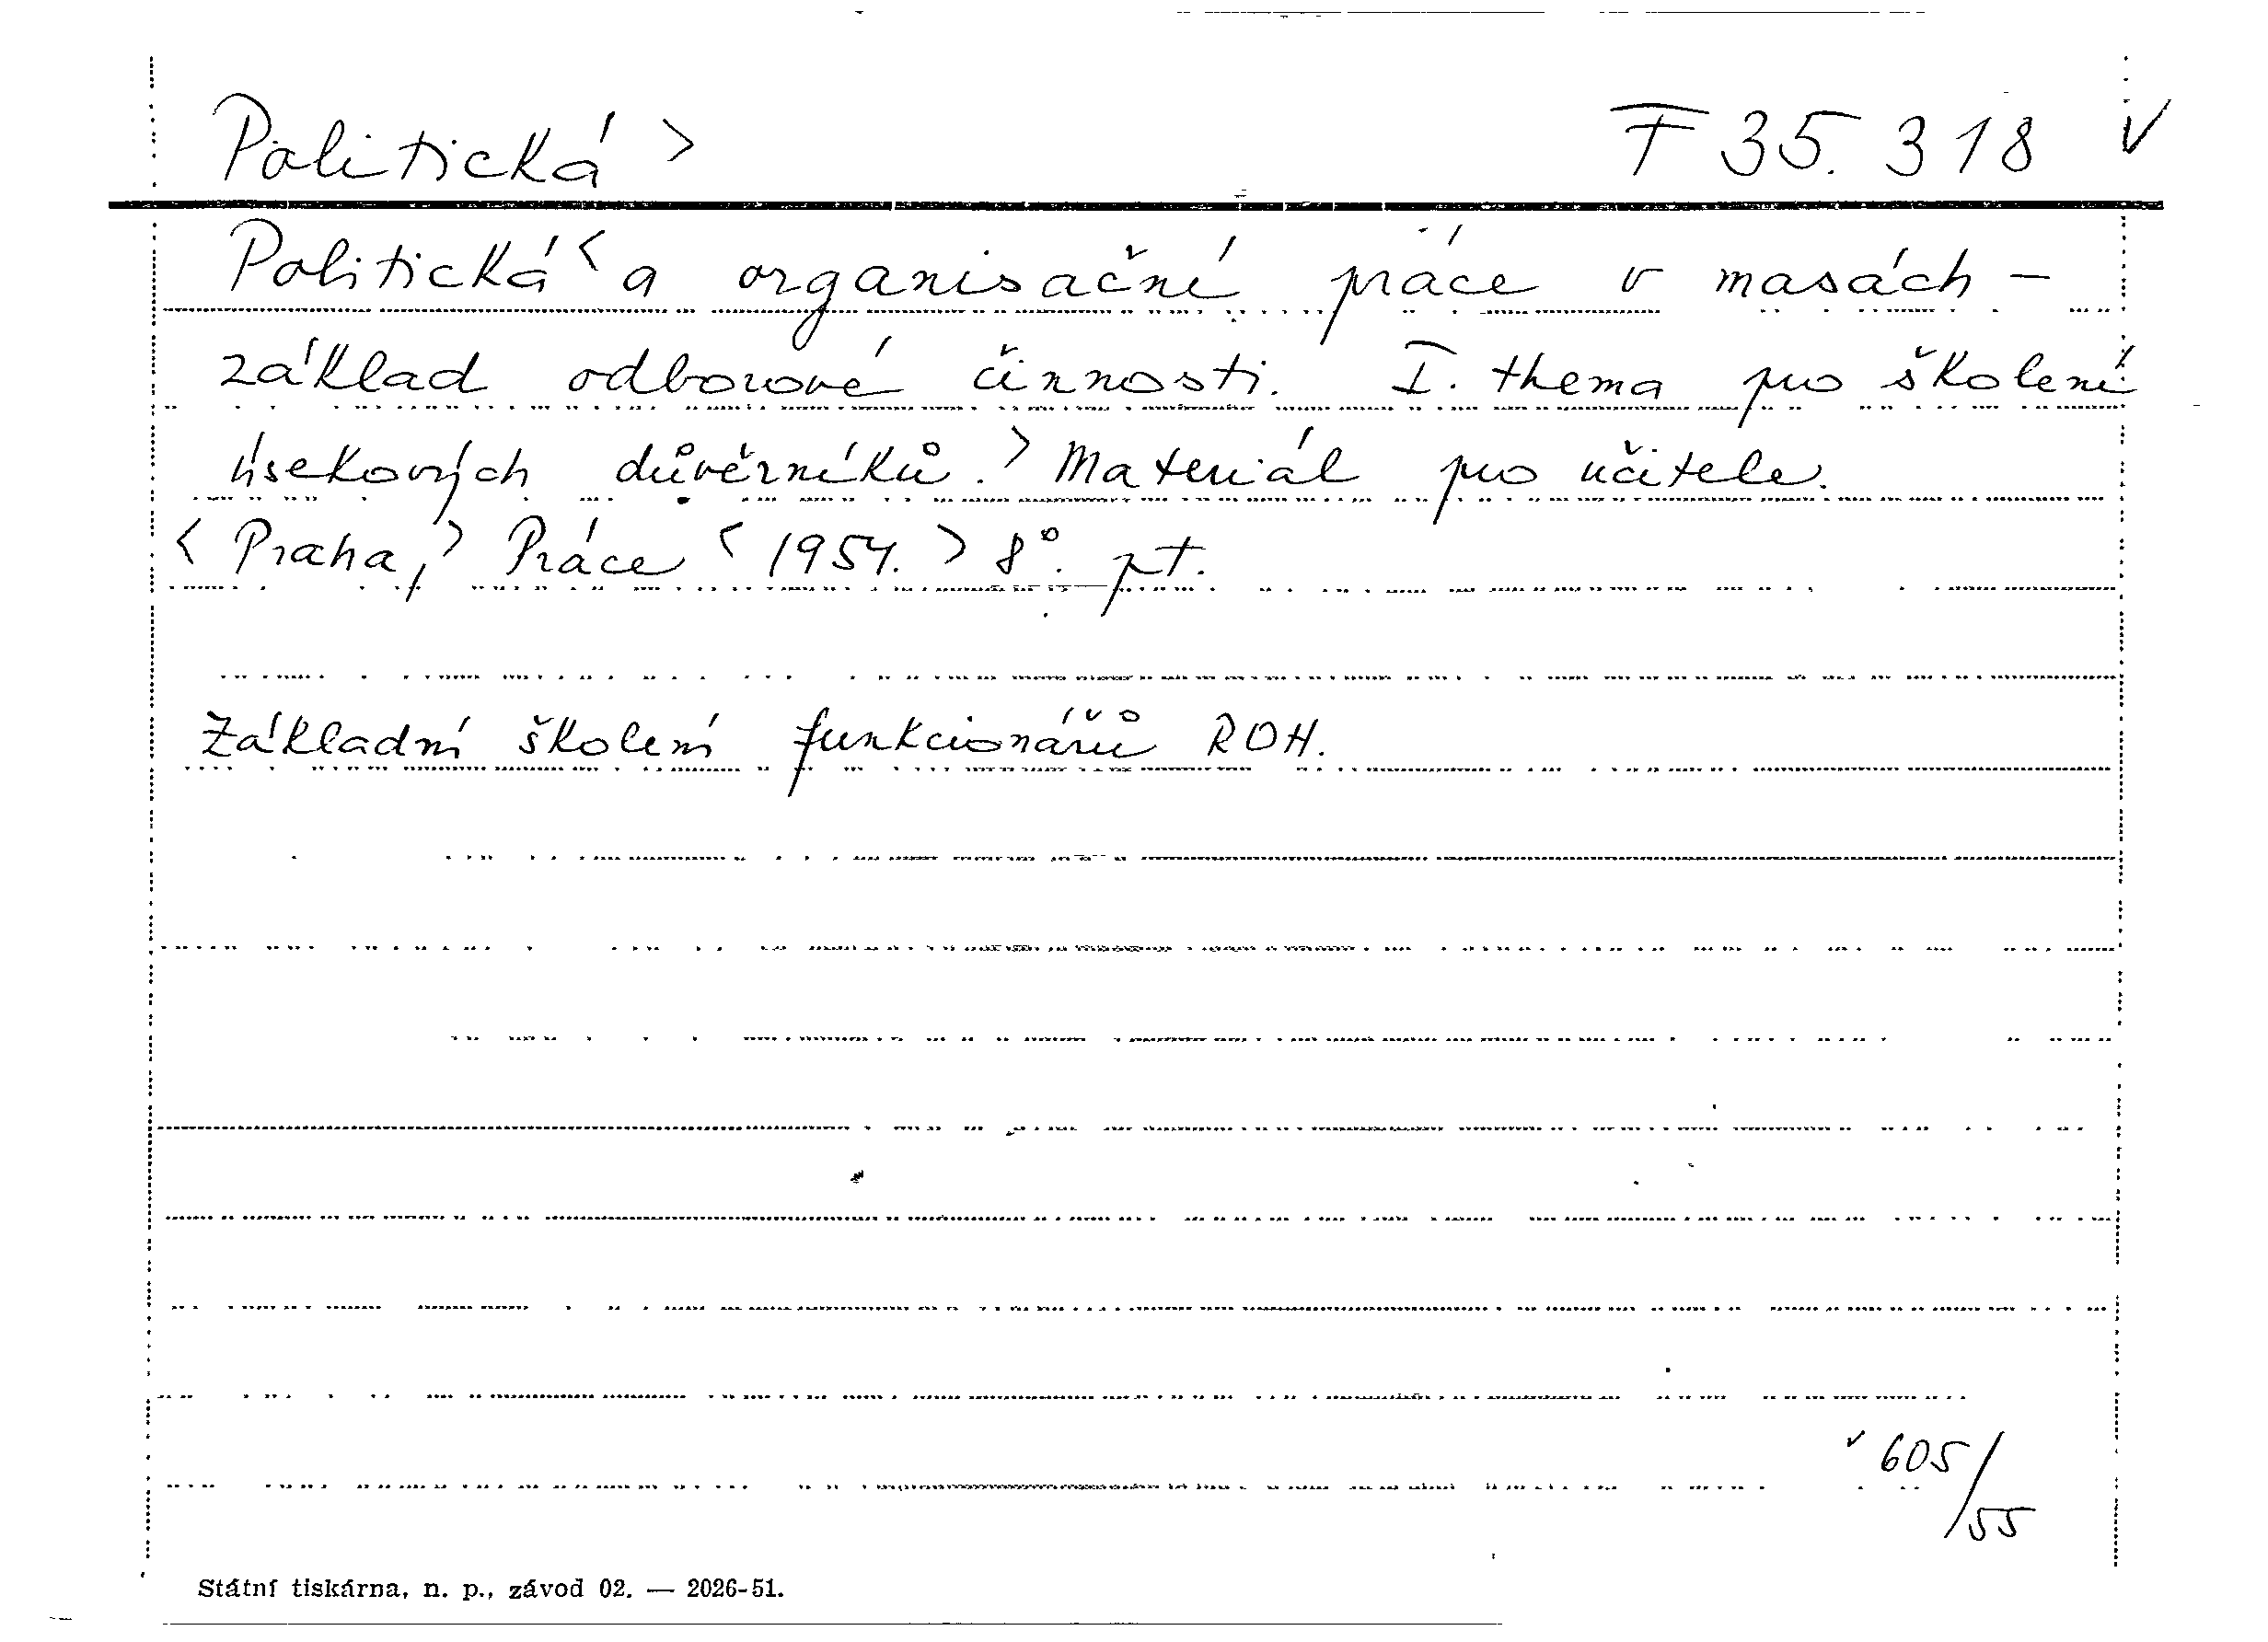 Politická > F 35.318 ✓
Politická < a organisační práce v masách –
základ odborové činnosti. I. thema pro školení
úsekových důvěrníků. > Materiál pro učitele.
< Praha, > Práce < 1954. > 8°. pt.
Základní školení funkcionářů ROH.
✓ 605/55
Státní tiskárna, n. p., závod 02. — 2026-51.